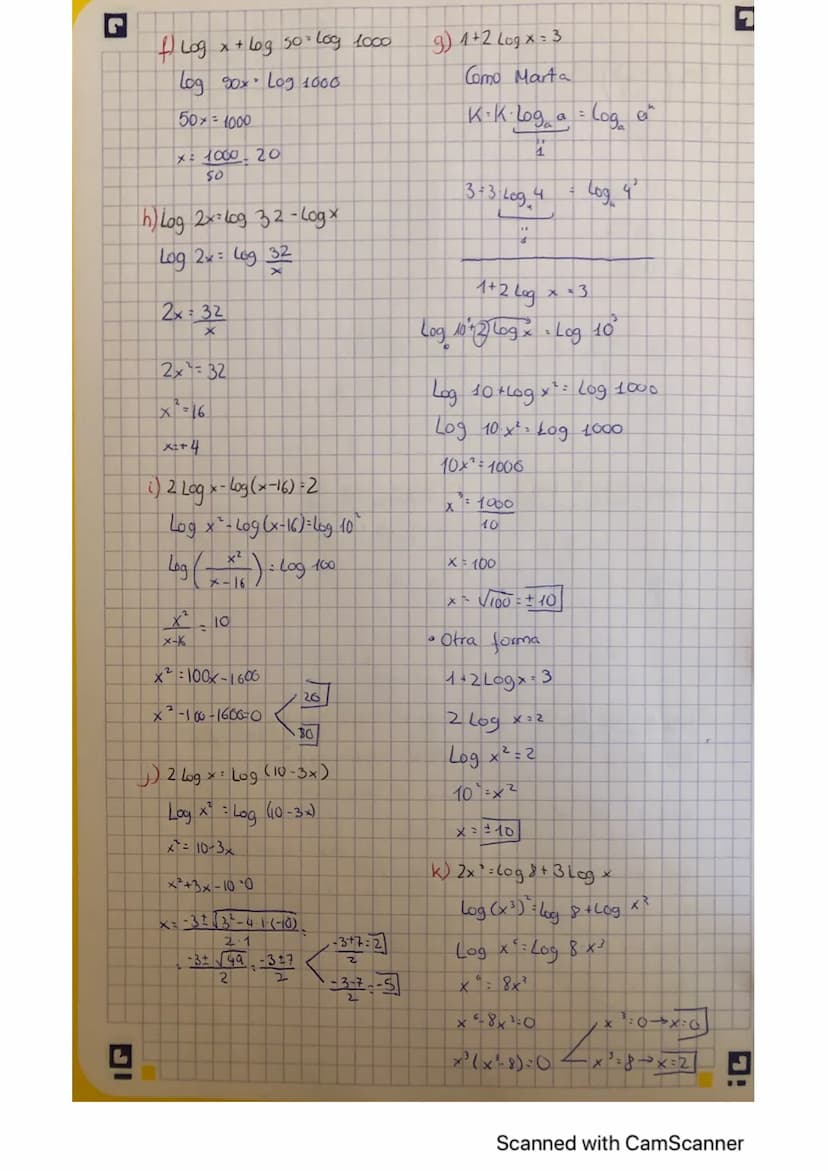 f) Log x + Log 50 = Log 1000
Log 50x = Log 1000
50x = 1000
x = 1000/50 = 20
h) Log 2x = Log 32 - Log x
Log 2x = Log 32/x
2x = 32/x
2x² = 32
x² = 16
x = +4
i) 2 Log x - Log (x-16) = 2
Log x² - Log (x-16) = Log 10²
Log (x²/x-16) = Log 100
x²/x-16 = 10
x² = 100x - 1600
x² - 100 - 1600 = 0
20
80
j) 2 Log x = Log (10-3x)
Log x² = Log (10-3x)
x² = 10-3x
x² + 3x - 10 = 0
x = -3 ± √3² - 4·1·(-10) / 2·1 =
= -3 ± √49 / 2 = -3 ± 7 / 2
-3+7/2 = 2
-3-7/2 = -5
g) 1 + 2 Log x = 3
Como Marta
K = K · Logₐ a = Logₐ aⁿ
1
3 = 3 · Logₐ 4 = Logₐ 4³
1 + 2 Log x = 3
Log 10¹ + 2 Log x = Log 10³
Log 10 + Log x² = Log 1000
Log 10·x² = Log 1000
10x² = 1000
x² = 1000/10
x = 100
x = √100 = ±10
• Otra forma
1 + 2 Log x = 3
2 Log x = 2
Log x² = 2
10² = x²
x = ±10
k) 2x³ = Log 8 + 3 Log x
Log (x³)² = Log 8 + Log x³
Log x⁶ = Log 8 x³
x⁶ = 8x³
x⁶ - 8x³ = 0
x³ (x³ - 8) = 0
x³ = 0 → x = 0
x³ = 8 → x = 2
Scanned with CamScanner